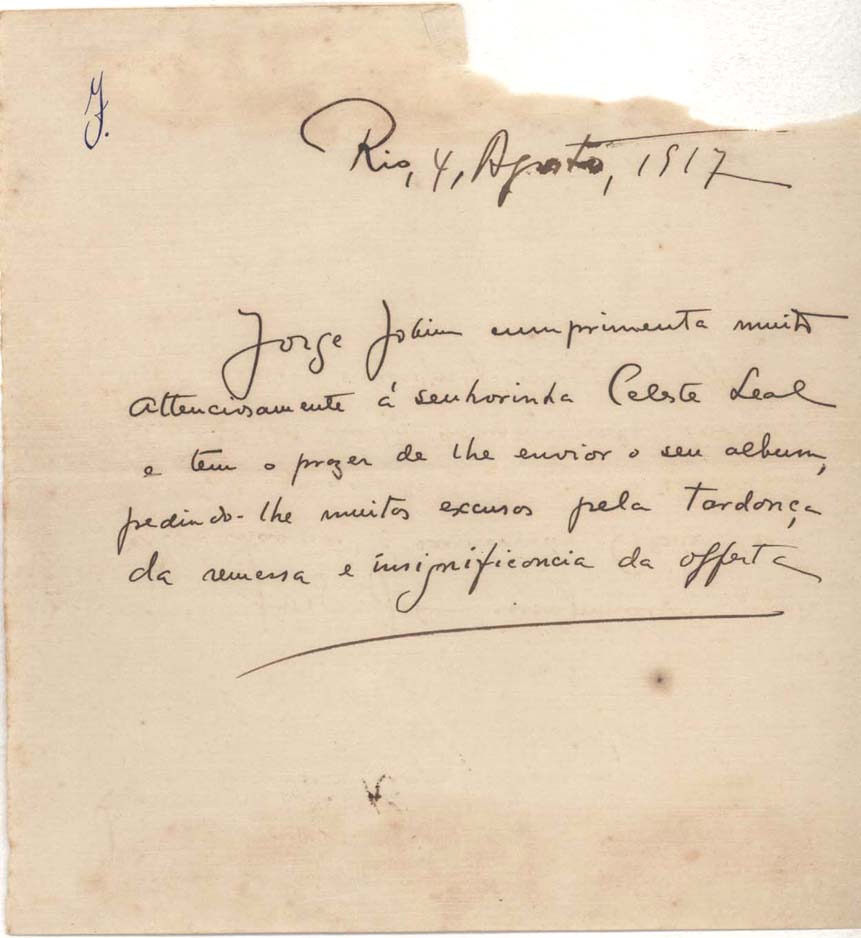 J.
Rio, 4, Agosto, 1917
Jorge Jobim cumprimenta muito
attenciosamente á senhorinha Celeste Leal
e tem o prazer de lhe enviar o seu album,
pedindo-lhe muitas excusas pela tardança
da remessa e insignificancia da offerta